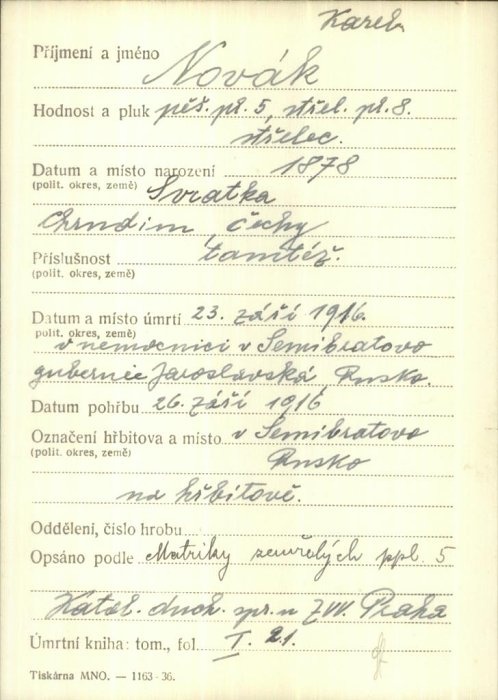 Karel
Příjmení a jméno Novák
Hodnost a pluk pěš. pl. 5, střel. pl. 8.
střelec.
Datum a místo narození 1878
(polit. okres, země) Svratka
Chrudim, Čechy
Příslušnost tamtéž.
(polit. okres, země)
Datum a místo úmrtí 23. září 1916.
polit. okres, země)
v nemocnici v Semibratovo
gubernie Jaroslavská, Rusko.
Datum pohřbu 26. září 1916
Označení hřbitova a místo v Semibratovo
(polit. okres, země) Rusko
na hřbitově.
Oddělení, číslo hrobu
Opsáno podle Matriky zemřelých ppl. 5
Katol. duch. spr. u ZVV. Praha
Úmrtní kniha: tom., fol. I. 21.
Tiskárna MNO. — 1163-36.